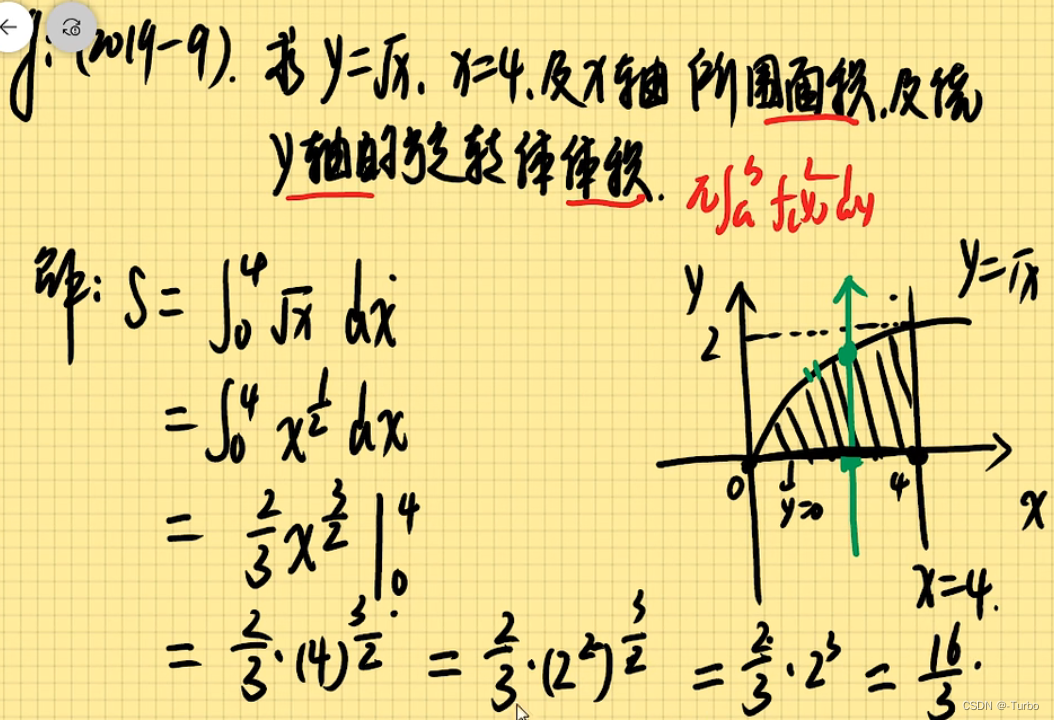 例:(2019-9). 求 y=√x, x=4, 及x轴 所围面积,及绕
y轴的旋转体体积.
π∫ₐᵇ f²(y) dy
解: S = ∫₀⁴ √x dx
= ∫₀⁴ x^(1/2) dx
= 2/3 x^(3/2) |₀⁴
= 2/3 · (4)^(3/2) = 2/3 · (2²)^(3/2) = 2/3 · 2³ = 16/3.
y
y=√x
2
0
y=0
4
x
x=4.
CSDN @-Turbo